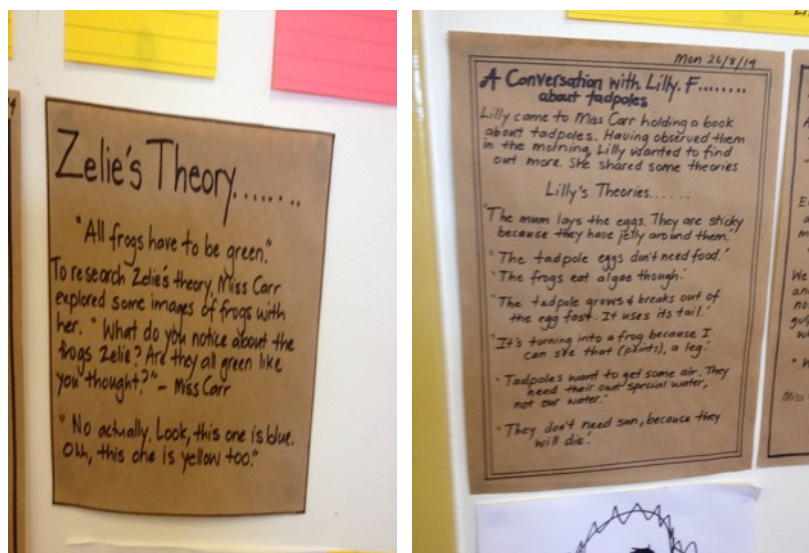 Zelie's Theory.......
"All frogs have to be green."
To research Zelie's theory, Miss Carr
explored some images of frogs with
her. "What do you notice about the
frogs Zelie? Are they all green like
you thought?" - Miss Carr
"No actually. Look, this one is blue.
Ohh, this one is yellow too."
Mon 26/8/19
A Conversation with Lilly. F........
about tadpoles
Lilly came to Miss Carr holding a book
about tadpoles. Having observed them
in the morning, Lilly wanted to find
out more. She shared some theories
Lilly's Theories......
"The mum lays the eggs. They are sticky
because they have jelly around them."
"The tadpole eggs don't need food."
"The frogs eat algae though."
"The tadpole grows & breaks out of
the egg fast. It uses its tail."
"It's turning into a frog because I
can see that (points), a leg."
"Tadpoles want to get some air. They
need their own special water,
not our water."
"They don't need sun, because they
will die."